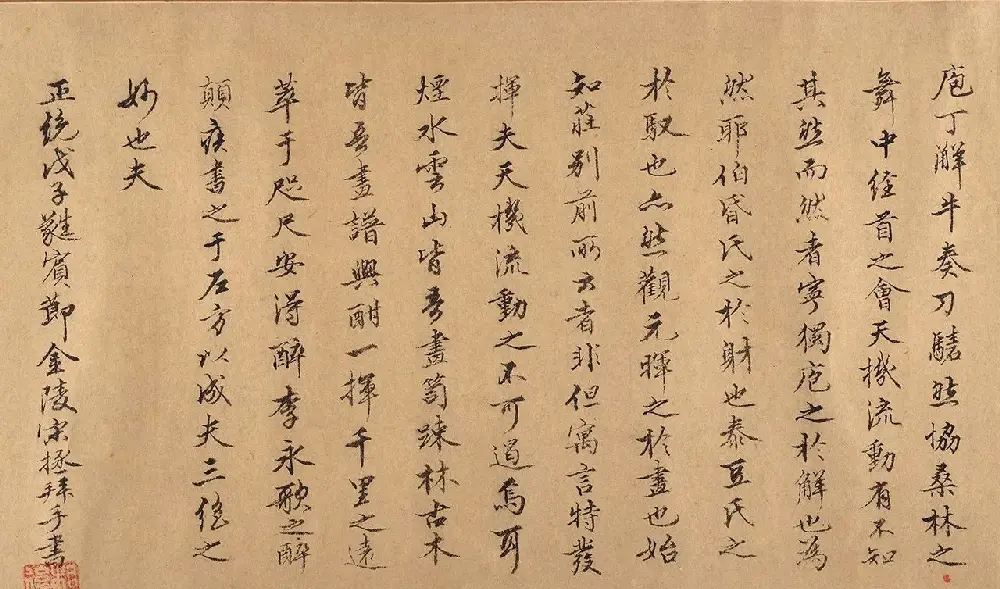 庖丁解牛奏刀騞然協桑林之
舞中經首之會天機流動有不知
其然而然者寧獨庖之於解也為
然耶伯昏氏之於射也泰豆氏之
於馭也亦然觀元暉之於畫也始
知莊列前所云者非但寓言特發
揮夫天機流動之不可遏焉耳
煙水雲山皆吾畫笥踈林古木
皆吾畫譜興酣一揮千里之遠
萃于咫尺安得醉李永歌之醉
顛疾書之于左方以成夫三絕之
妙也夫
正統戊子蕤賓節金陵宋拯拜手書